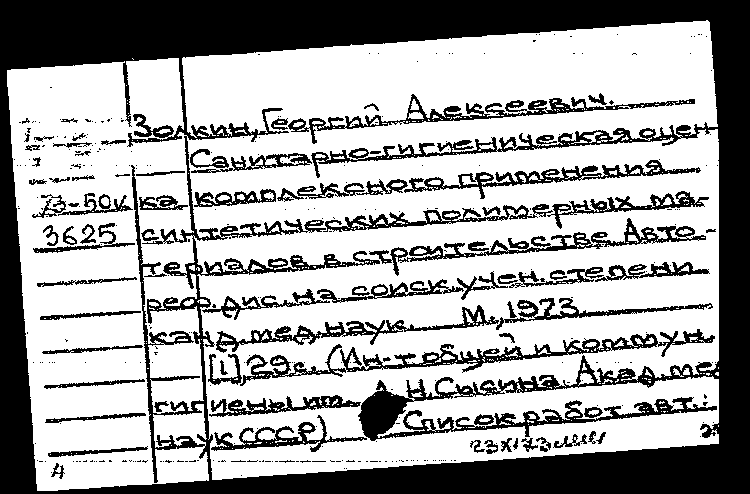 Золкин, Георгий Алексеевич.
Санитарно-гигиеническая оцен-
73-50к ка комплексного применения
3625 синтетических полимерных ма-
териалов в строительстве Авто-
реф. дис. на соиск. учен. степени
канд. мед. наук. М., 1973.
[1], 29 с. (Ин-т общей и коммун.
гигиены им. А. Н. Сысина. Акад. мед
наук СССР) Список работ авт.: